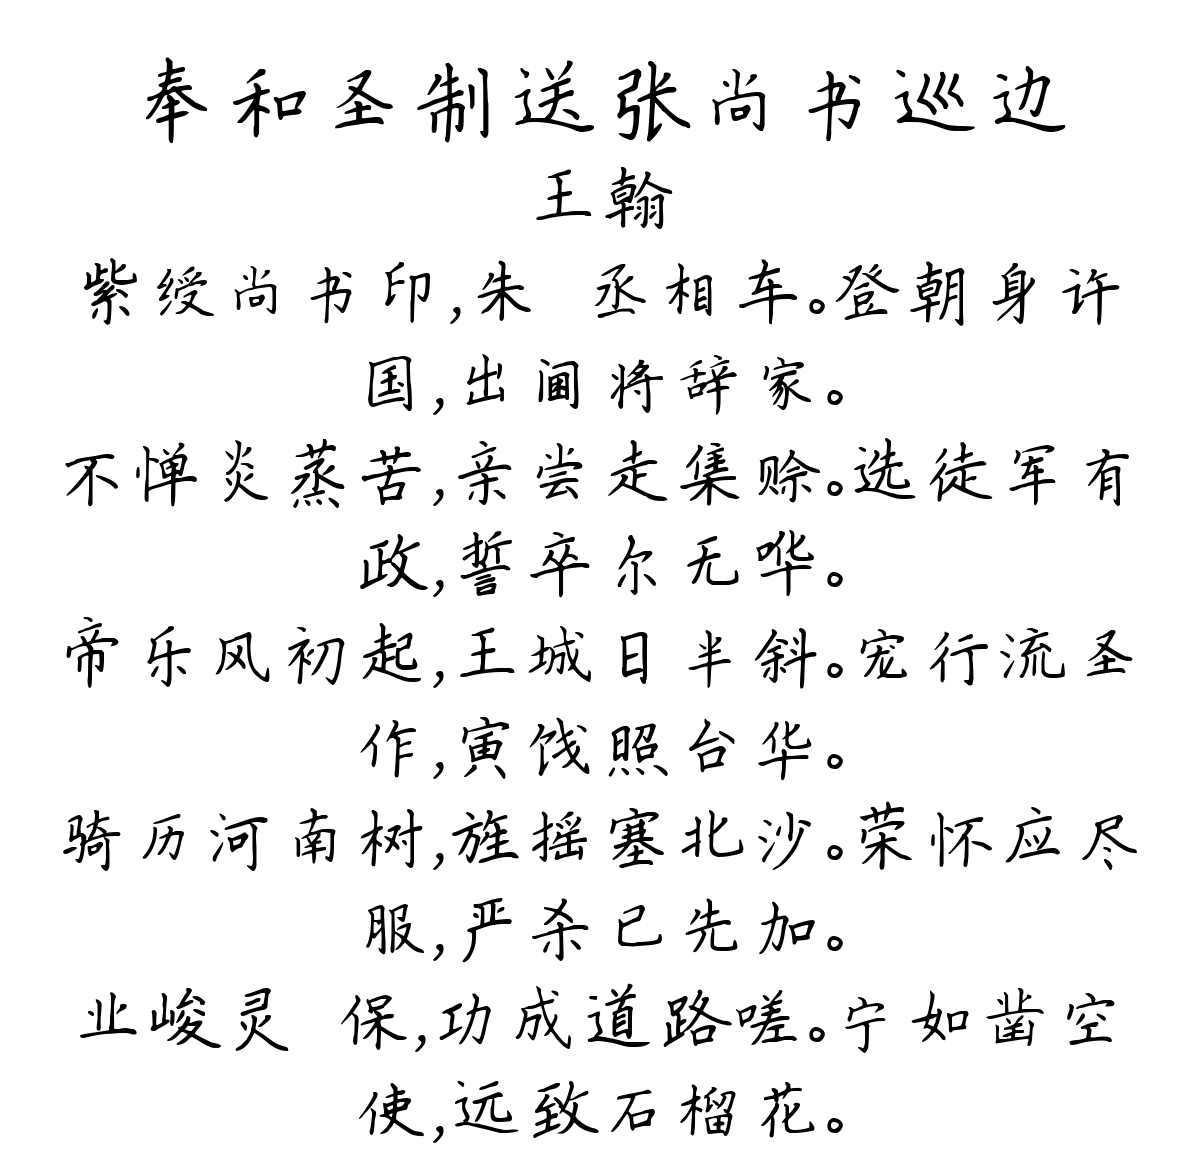 奉和圣制送张尚书巡边
王翰
紫绶尚书印,朱 丞相车。登朝身许
国,出阃将辞家。
不惮炎蒸苦,亲尝走集赊。选徒军有
政,誓卒尔无哗。
帝乐风初起,王城日半斜。宠行流圣
作,寅饯照台华。
骑历河南树,旌摇塞北沙。荣怀应尽
服,严杀已先加。
业峻灵 保,功成道路嗟。宁如凿空
使,远致石榴花。